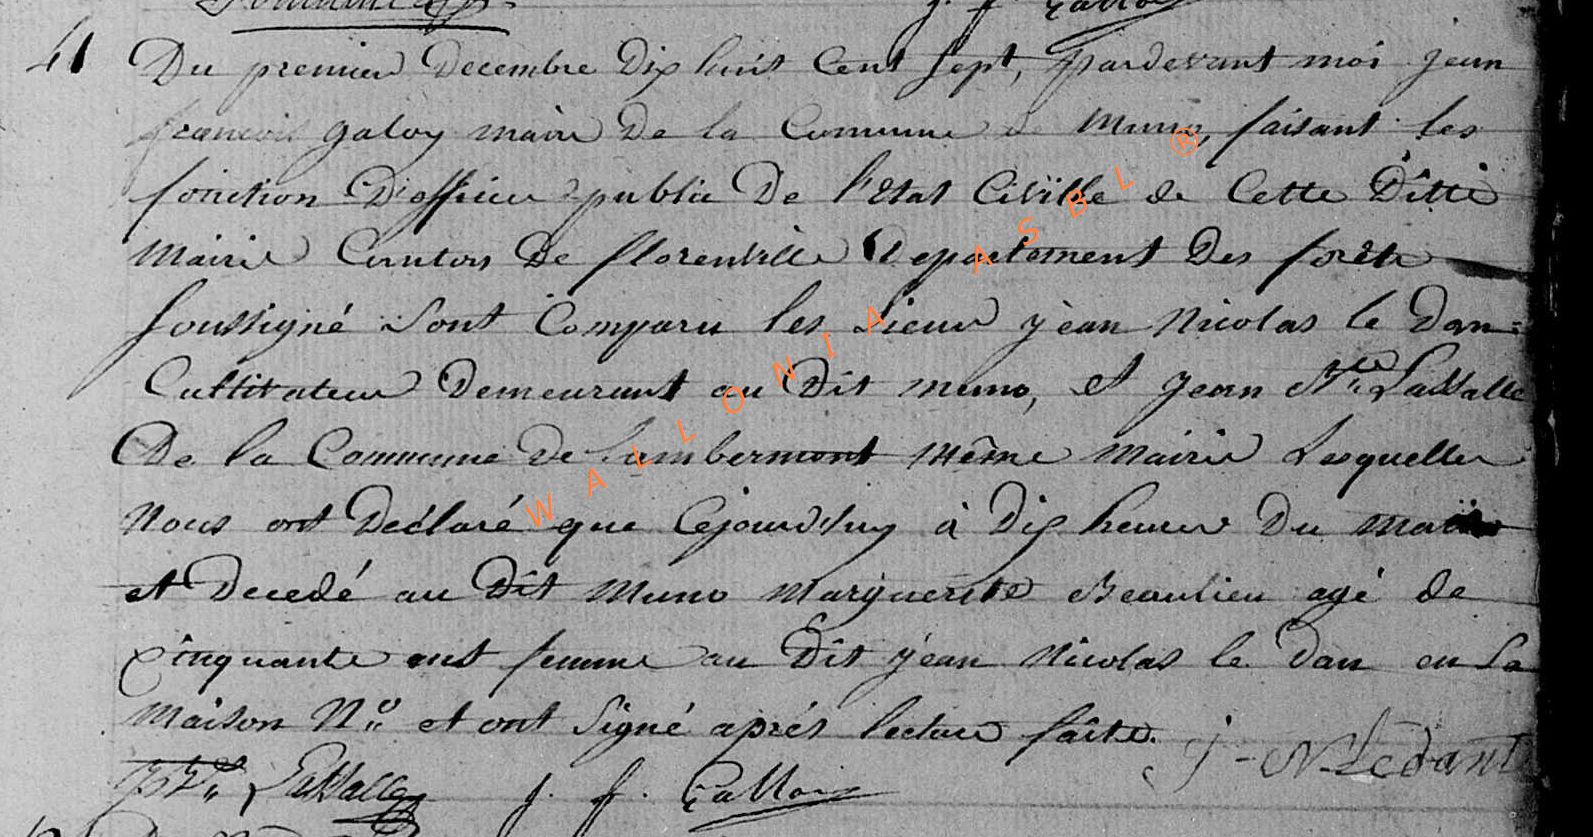 J. F. Galloy
41 Du premier Decembre Dix huit Cent Sept, pardevant moi jean
francois galoy maire De la Commune de Muno, faisant les
fonction D'officier public De l'Etat Civille de Cette Ditte
Mairie Canton De florenville Departement Des forêts
Soussigné Sont Comparu les Sieur jèan Nicolas le Dan
Cultivateur Demeurant au Dit muno, et jean Bte LaValle
De la Commune De Lambermont Même Mairie Lesqueller
Nous ont Déclaré que Cejourd'huy à Dix heures Du matin
et Decedé au Dit Muno Marguerite Beaulieu agé de
Cinquante ans femme au Dit jèan Nicolas le Dan en Sa
Maison No et ont Signé aprés lecture faite.
J Bte LaValle J. F. Galloy J-N Ledant
WALLONIA ASBL ®